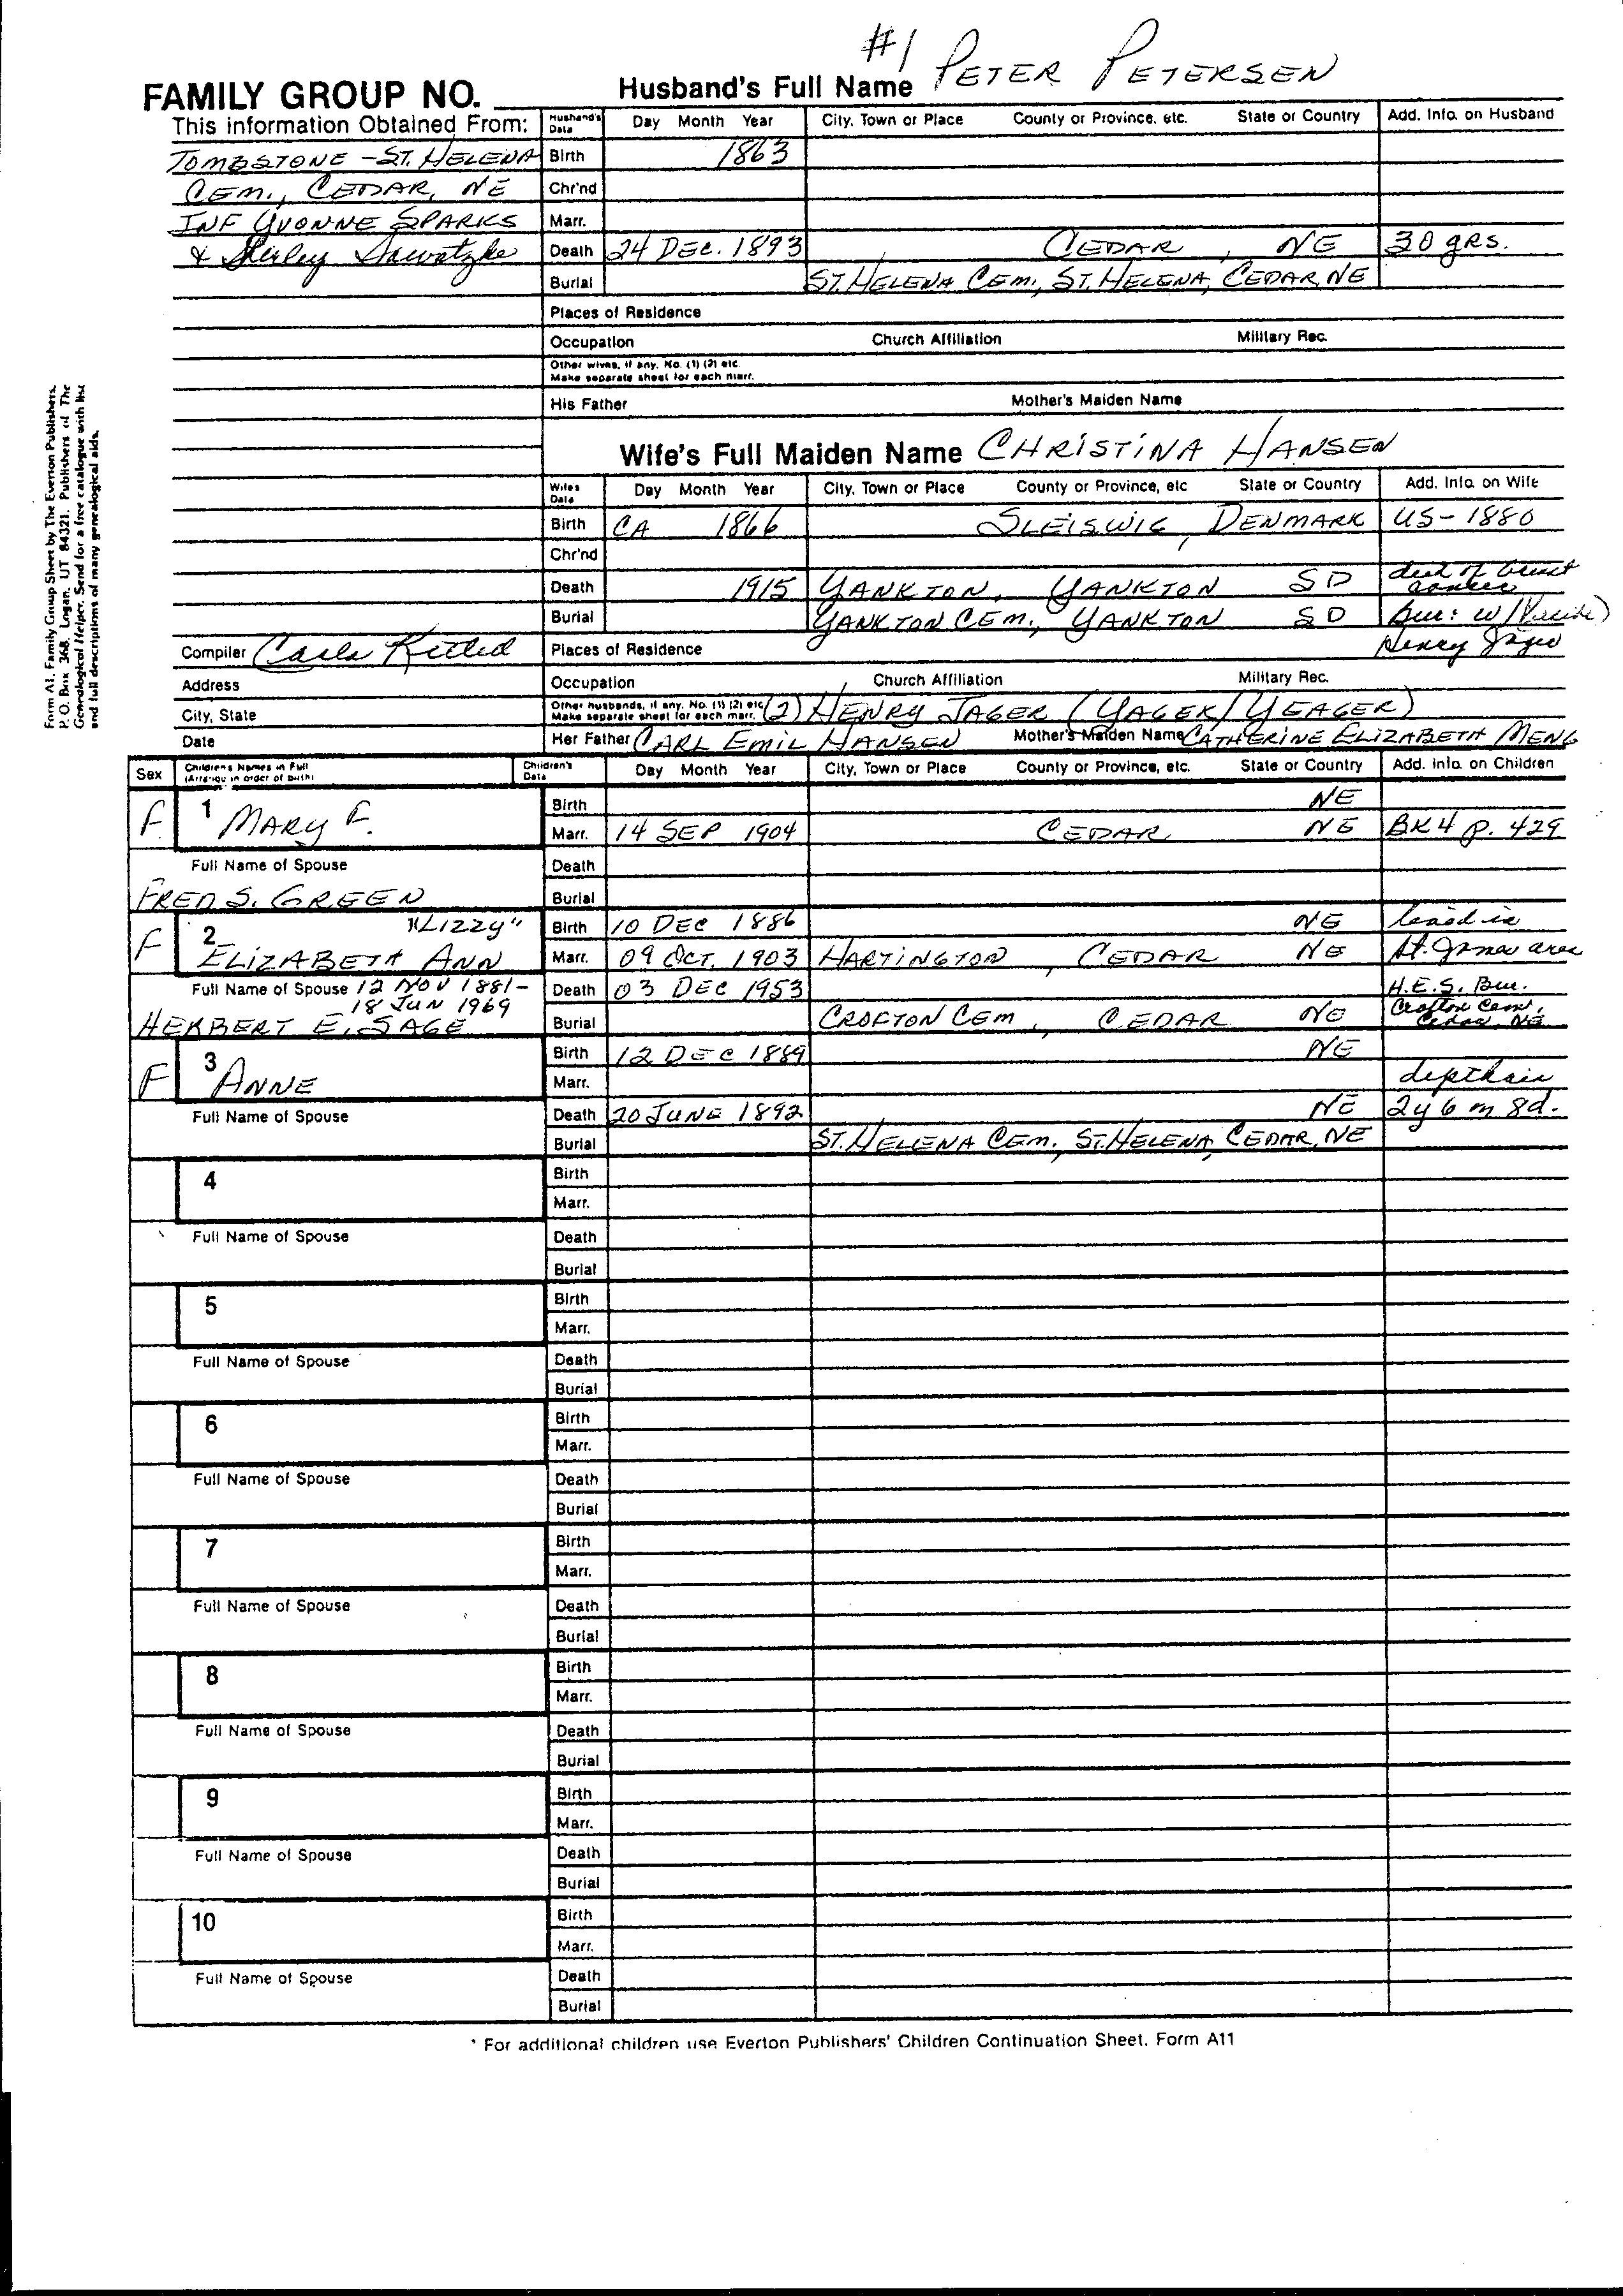 #1
FAMILY GROUP NO. Husband's Full Name PETER PETERSEN
This information Obtained From: Husband's Data Day Month Year City, Town or Place County or Province, etc. State or Country Add. Info. on Husband
TOMBSTONE - ST. HELENA Birth 1863
CEM., CEDAR, NE Chr'nd
INF YVONNE SPARKS Marr.
& Shirley Sawatzke Death 24 DEC. 1893 , CEDAR , NE 30 yrs.
Burial ST. HELENA CEM., ST. HELENA, CEDAR, NE
Places of Residence
Occupation Church Affiliation Military Rec.
Other wives, if any. No. (1) (2) etc.
Make separate sheet for each marr.
His Father Mother's Maiden Name
Wife's Full Maiden Name CHRISTINA HANSEN
Wife's Data Day Month Year City, Town or Place County or Province, etc State or Country Add. Info. on Wife
Birth CA 1866 SLEISWIG, DENMARK US-1880
Chr'nd
Death 1915 YANKTON, YANKTON SD died of brest cancer
Burial YANKTON CEM., YANKTON SD Bur: w/
Compiler Carla Places of Residence Henry Jager
Address Occupation Church Affiliation Military Rec.
City, State Other husbands, if any. No. (1) (2) etc. Make separate sheet for each marr. (2) HENRY JAGER (YAGER/YEAGER)
Date Her Father CARL EMIL HANSEN Mother's Maiden Name CATHERINE ELIZABETH MENG
Sex Children's Names in Full (Arrange in order of birth) Children's Data Day Month Year City, Town or Place County or Province, etc. State or Country Add. info. on Children
F 1 MARY F. Birth NE
Marr. 14 SEP 1904 CEDAR, NE BK 4 p. 429
Full Name of Spouse Death
FRED S. GREEN Burial
F 2 "LIZZY" Birth 10 DEC 1886 NE lived in
ELIZABETH ANN Marr. 09 OCT. 1903 HARTINGTON, CEDAR NE St. James area
Full Name of Spouse 12 NOV 1881- Death 03 DEC 1953 H.E.S. Bur.
18 JUN 1969
HERBERT E. SAGE Burial CROFTON CEM., CEDAR NE Crofton Cem, Cedar, NE
F 3 ANNE Birth 12 DEC 1889 NE
Marr. depthair
Full Name of Spouse Death 20 JUNE 1892 NE 2y 6m 8d.
Burial ST. HELENA CEM., ST. HELENA, CEDAR, NE
4 Birth
Marr.
Full Name of Spouse Death
Burial
5 Birth
Marr.
Full Name of Spouse Death
Burial
6 Birth
Marr.
Full Name of Spouse Death
Burial
7 Birth
Marr.
Full Name of Spouse Death
Burial
8 Birth
Marr.
Full Name of Spouse Death
Burial
9 Birth
Marr.
Full Name of Spouse Death
Burial
10 Birth
Marr.
Full Name of Spouse Death
Burial
* For additional children use Everton Publishers' Children Continuation Sheet, Form A11
Form A1. Family Group Sheet by The Everton Publishers,
P. O. Box 368, Logan, UT 84321. Publishers of The
Genealogical Helper. Send for a free catalogue with list
and full descriptions of many genealogical aids.